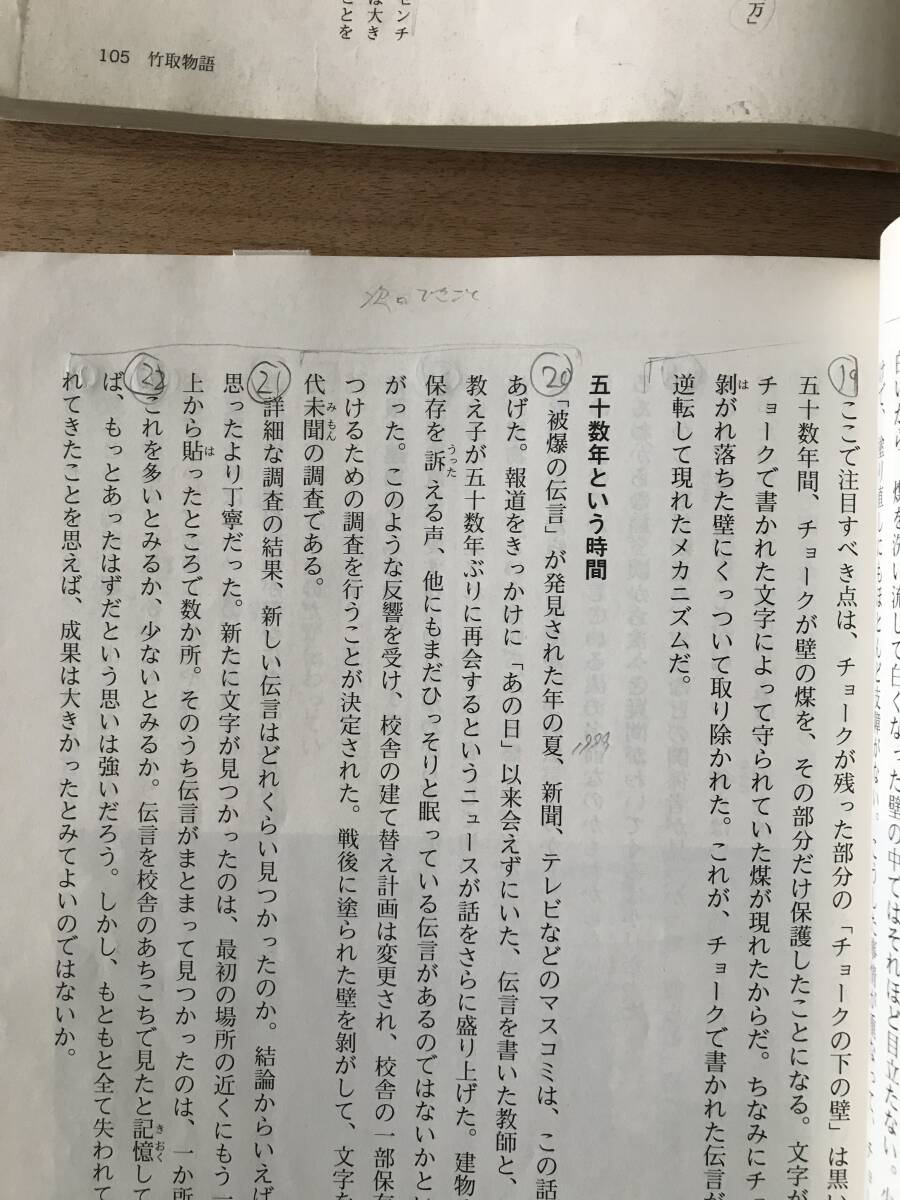 万」
センチ
は大き
ことを
105 竹取物語
次のできごと
⑲ ここで注目すべき点は、チョークが残った部分の「チョークの下の壁」は黒
五十数年間、チョークが壁の煤を、その部分だけ保護したことになる。文字が
チョークで書かれた文字によって守られていた煤が現れたからだ。ちなみにチ
剝がれ落ちた壁にくっついて取り除かれた。これが、チョークで書かれた伝言が
は
逆転して現れたメカニズムだ。
五十数年という時間
⑳ 「被爆の伝言」が発見された年の夏、新聞、テレビなどのマスコミは、この話
1999
あげた。報道をきっかけに「あの日」以来会えずにいた、伝言を書いた教師と、
教え子が五十数年ぶりに再会するというニュースが話をさらに盛り上げた。建物
保存を訴える声、他にもまだひっそりと眠っている伝言があるのではないかとい
うった
がった。このような反響を受け、校舎の建て替え計画は変更され、校舎の一部保存
つけるための調査を行うことが決定された。戦後に塗られた壁を剝がして、文字を
代未聞の調査である。
みもん
㉑ 詳細な調査の結果、新しい伝言はどれくらい見つかったのか。結論からいえば
思ったより丁寧だった。新たに文字が見つかったのは、最初の場所の近くにもう一
上から貼ったところで数か所。そのうち伝言がまとまって見つかったのは、一か所
は
㉒ これを多いとみるか、少ないとみるか。伝言を校舎のあちこちで見たと記憶して
きおく
ば、もっとあったはずだという思いは強いだろう。しかし、もともと全て失われて
れてきたことを思えば、成果は大きかったとみてよいのではないか。